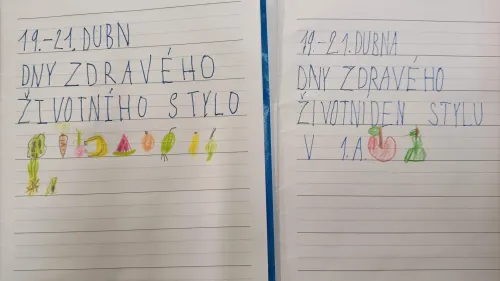 19.-21. DUBN
DNY ZDRAVÉHO
ŽIVOTNÍHO STYLO
19-21. DUBNA
DNY ZDRAVÉHO
ŽIVOTNIDEN STYLU
V 1.A.